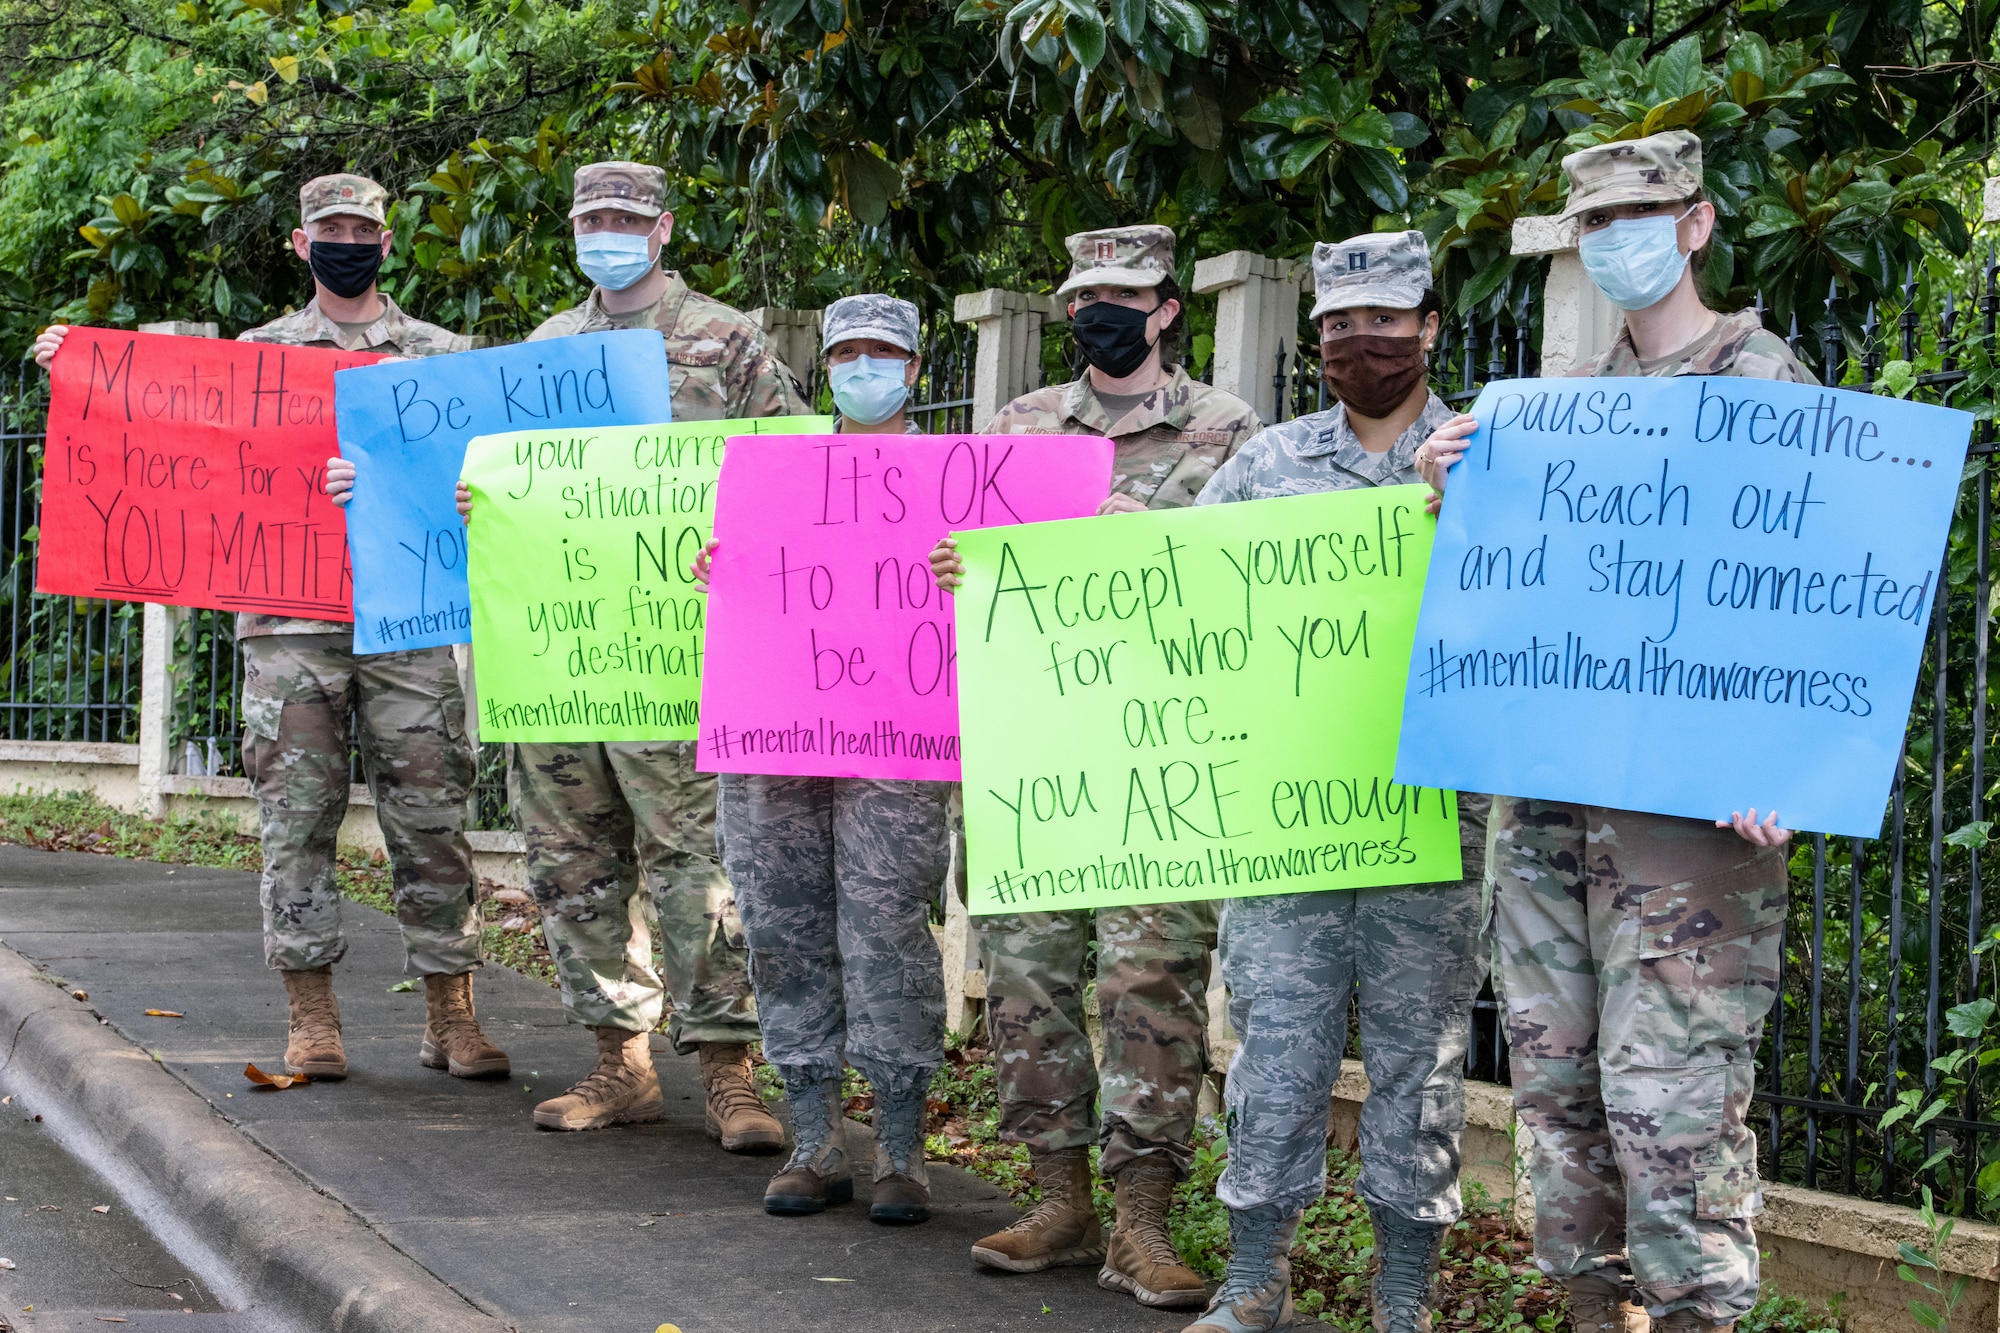 Mental Heal
is here for yo
YOU MATTER
Be kind
you
#menta
your curre
situation
is NO
your fina
destinat
#mentalhealthawa
It's OK
to no
be OK
#mentalhealthawa
Accept yourself
for who you
are...
you ARE enough
#mentalhealthawareness
pause... breathe...
Reach out
and stay connected
#mentalhealthawareness
HUDSON
AIR FORCE
AIR FORCE